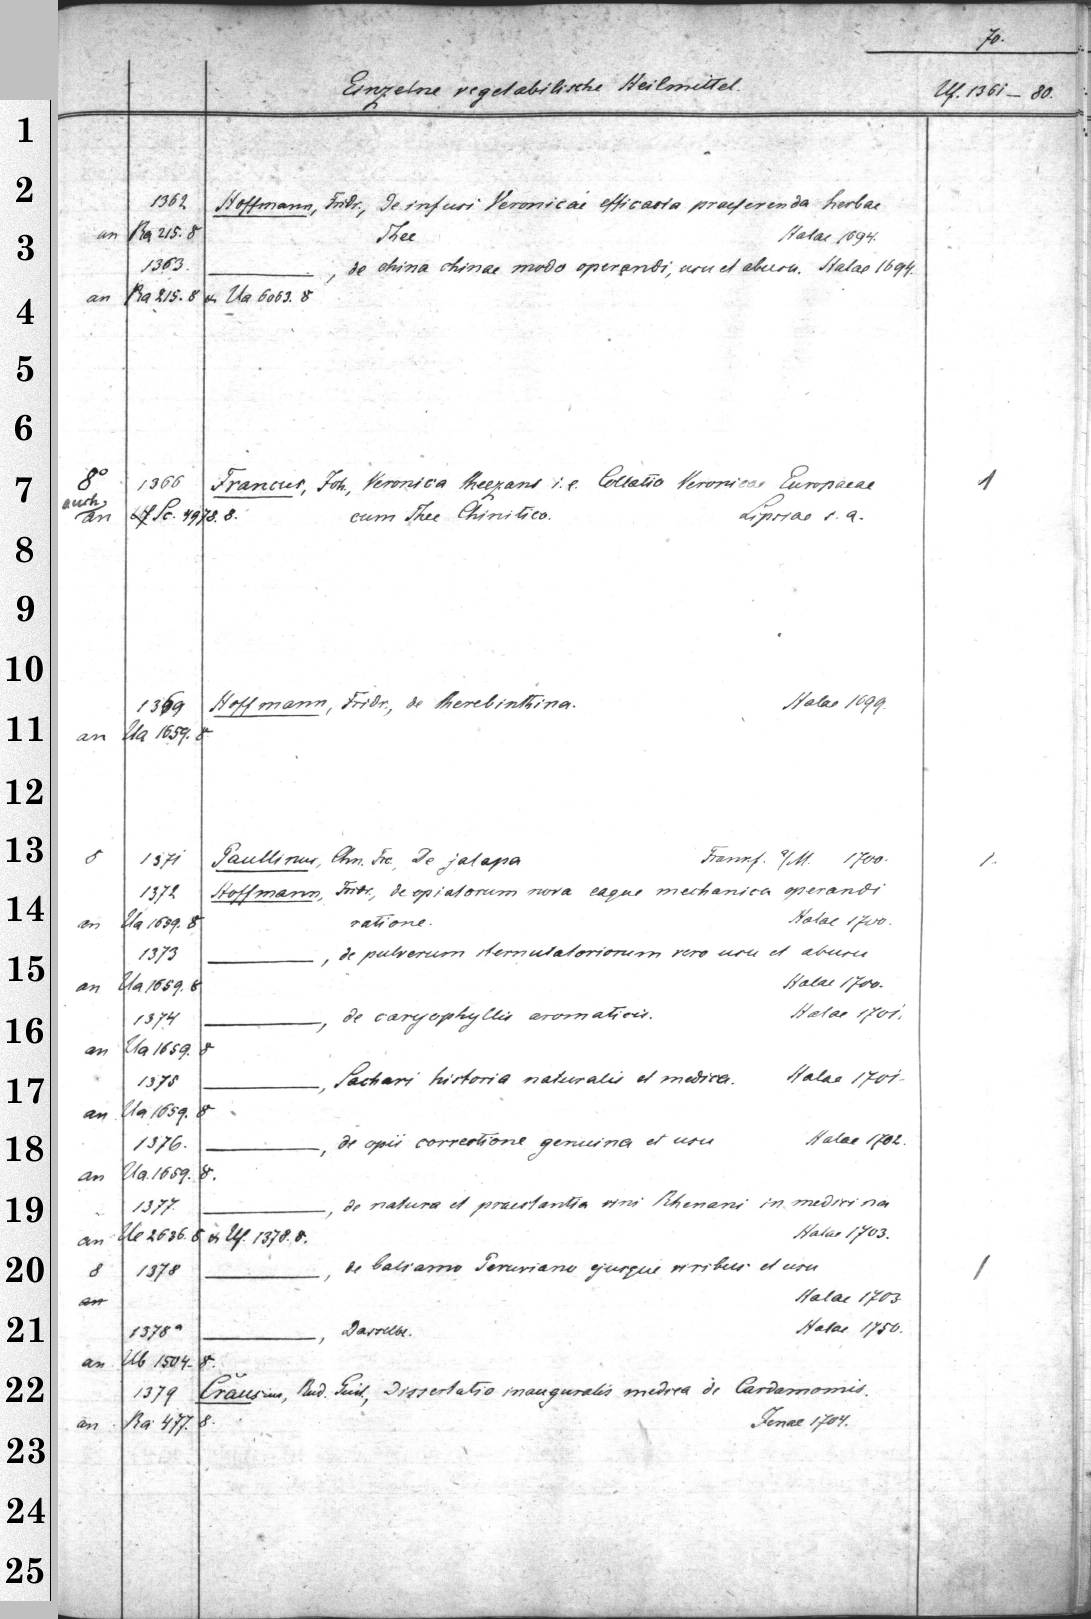 70.
Einzelne vegetabilische Heilmittel.
Uf. 1361 – 80.
1362 Hoffmann, Fridr., De infusi Veronicae efficacia praeferenda herbae
an Ra 215. 8 Thee Halae 1694.
1363. ———, de china chinae modo operandi, usu et abusu. Halae 1694.
an Ra 215. 8 & Ua 6063. 8
8° 1366 Francus, Joh., Veronica theezans i. e. Collatio Veronicae Europaeae 1
auch
an Uf Sc. 4978. 8. cum Thee Chinitico. Lipsiae s. a.
1369 Hoffmann, Fridr., de therebinthina. Halae 1699.
an Ua 1659. 8
8 1371 Paullinus, Chn. Frc., De jalapa Francf. a/M. 1700. 1.
1372 Hoffmann, Fridr., de opiatorum nova eaque mechanica operandi
an Ua 1659. 8 ratione. Halae 1700.
1373 ———, de pulverum sternutatoriorum vero usu et abusu
an Ua 1659. 8 Halae 1700.
1374 ———, de caryophyllis aromaticis. Halae 1701.
an Ua 1659. 8
1375 ———, Sachari historia naturalis et medica. Halae 1701.
an Ua 1659. 8
1376. ———, de opii correctione genuina et usu Halae 1702.
an Ua. 1659. 8.
1377. ———, de natura et praestantia vini Rhenani in medicina
an Ue 2636. 8 & Uf. 1378. 8. Halae 1703.
8 1378 ———, de balsamo Peruviano ejusque viribus et usu 1
an Halae 1703
1378a ———, Dasselbe. Halae 1750.
an Ub 1504. 8.
1379 Crausius, Rud. Guil., Dissertatio inauguralis medica de Cardamomis.
an Ra 477. 8. Jenae 1704.
1
2
3
4
5
6
7
8
9
10
11
12
13
14
15
16
17
18
19
20
21
22
23
24
25